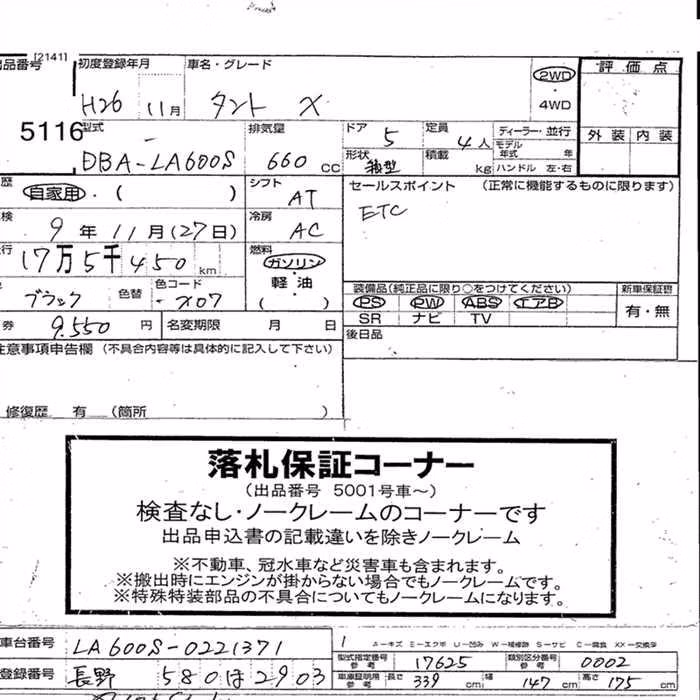 [2141]
出品番号 初度登録年月 車名・グレード 2WD ・ 4WD 評価点
H26 11月 タント X
外装 内装
5116
型式 DBA-LA600S
排気量 660 CC
ドア 5 定員 4人 ディーラー・並行
モデル年式 年
形状 箱型 積載 kg ハンドル 左・右
歴 自家用・( )
シフト AT
セールスポイント (正常に機能するものに限ります)
ETC
検 9年 11月(27日)
冷房 AC
行 17万5千450km
燃料 ガソリン 軽油 ( )
ブラック 色替 色コード X07
装備品(純正品に限り○をつけてください) 新車保証書
PS PW ABS エアB 有・無
SR ナビ TV
券 9.550円 名変期限 月 日
後日品
注意事項申告欄 (不具合内容等は具体的に記入して下さい)
修復歴 有 (箇所 )
落札保証コーナー
(出品番号 5001号車～)
検査なし・ノークレームのコーナーです
出品申込書の記載違いを除きノークレーム
※不動車、冠水車など災害車も含まれます。
※搬出時にエンジンが掛からない場合でもノークレームです。
※特殊特装部品の不具合についてもノークレームになります。
車台番号 LA600S-0221371
型式指定番号 参考 17625 類別区分番号 参考 0002
登録番号 長野 580 ほ 2903
車庫証明用 参考 長さ 339cm 幅 147cm 高さ 175cm